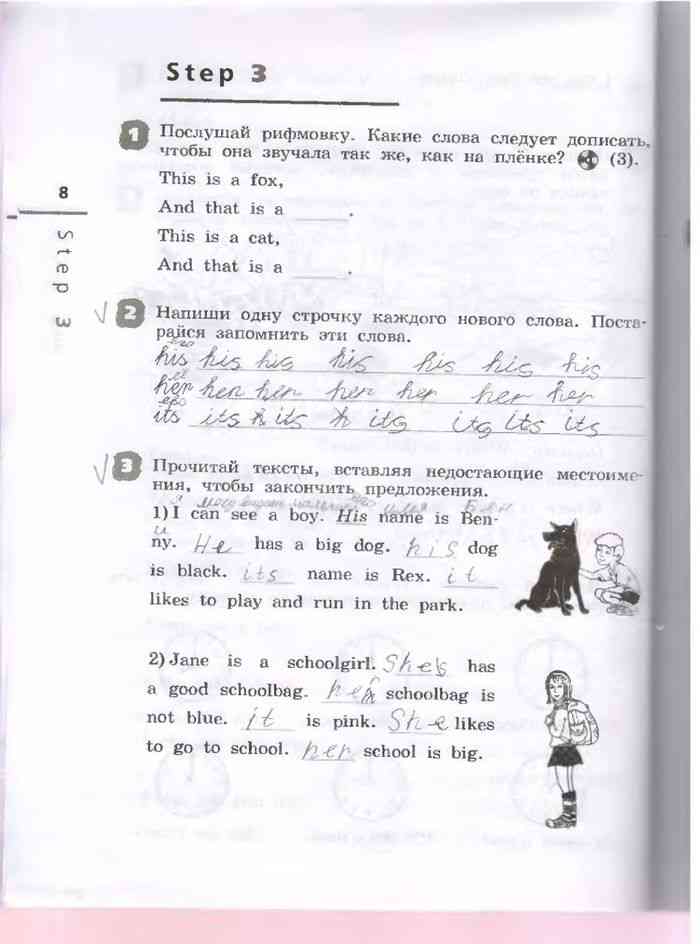 Step 3
1 Послушай рифмовку. Какие слова следует дописать,
чтобы она звучала так же, как на плёнке? (3).
This is a fox,
8
And that is a ______.
This is a cat,
And that is a ______.
Step 3
√ 2 Напиши одну строчку каждого нового слова. Поста-
райся запомнить эти слова.
его
his his his his his his his
её
her her her her her her her
его
its its h its h its its its its
√ 3 Прочитай тексты, вставляя недостающие местоиме-
ния, чтобы закончить предложения.
я могу видеть мальчик его имя Бен
1) I can see a boy. His name is Ben-
и
ny. He has a big dog. his dog
is black. its name is Rex. it
likes to play and run in the park.
2) Jane is a schoolgirl. She's has
a good schoolbag. her schoolbag is
not blue. it is pink. She likes
to go to school. her school is big.